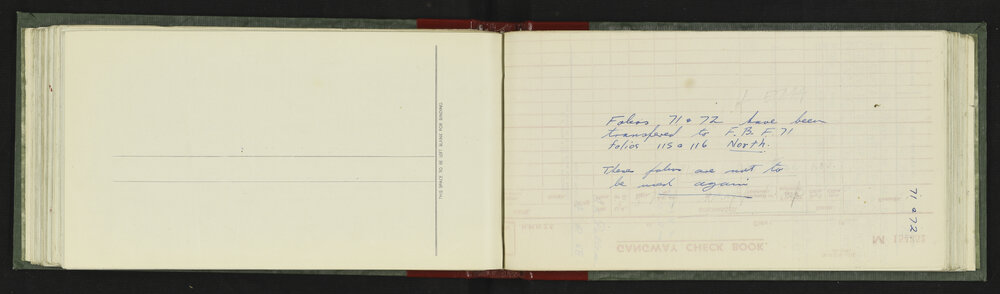 THIS SPACE TO BE LEFT BLANK FOR BINDING
Folios 71 & 72 have been
transfered to F. B. F 71
folios 115 & 116 North.
These folios are not to
be used again
71 & 72
GANGWAY CHECK BOOK
M